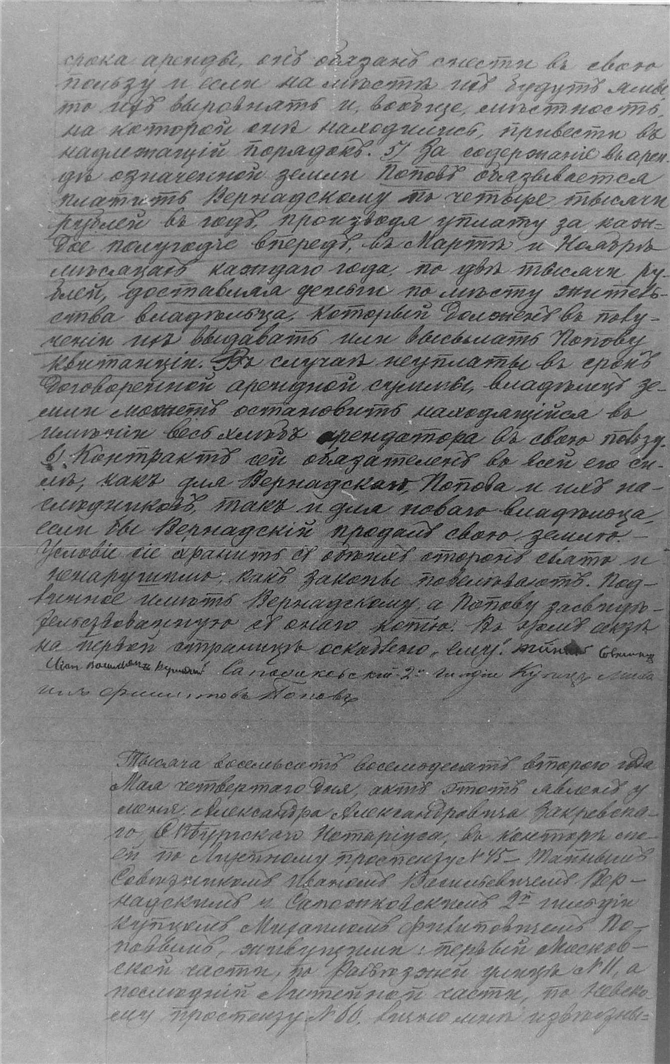 срока аренды, онъ обязанъ снести въ свою
пользу и если на мѣстѣ ихъ будутъ ямы
то ихъ выровнять и, вообще, мѣстность,
на которой онѣ находились, привести въ
надлежащій порядокъ. 5) За содержаніе въ арен-
дѣ означенной земли Поповъ обязывается
платить Вернадскому по четыре тысячи
рублей въ годъ, производя уплату за каж-
дое полугодіе впередъ, въ Мартѣ и Ноябрѣ
мѣсяцахъ каждаго года, по двѣ тысячи ру-
блей, доставляя деньги по мѣсту житель-
ства владѣльца, который долженъ въ полу-
ченіи ихъ выдавать или высылать Попову
квитанціи. Въ случаѣ неуплаты въ срокъ
договоренной арендной суммы, владѣлецъ зе-
мли можетъ остановить находящійся въ
имѣніи весь хлѣбъ арендатора въ свою пользу.
6) Контрактъ сей обязателенъ во всей его си-
лѣ, какъ для Вернадскаго, Попова и ихъ на-
слѣдниковъ, такъ и для новаго владѣльца,
если бы Вернадскій продалъ свою землю.
Условіе сіе хранить съ обѣихъ сторонъ свято и
ненарушимо, какъ законы повелѣваютъ. Под-
линное имѣть Вернадскому, а Попову засвидѣ-
тельствованную съ онаго копію. Въ семъ актѣ
на первой страницѣ оскоблено, ему.
Сапожковскій 2й гильдіи Купецъ
Поповъ
Тысяча восемьсотъ восемьдесятъ второго года
Мая четвертаго дня, актъ этотъ явленъ у
меня Александра Александровича Закревска-
го С. Пбургскаго Нотаріуса, въ конторѣ мо-
ей по Литейному проспекту № 45 – Тайнымъ
Совѣтникомъ Иваномъ Васильевичемъ Вер-
надскимъ и Сапожковскимъ 2й гильдіи
купцомъ Михаиломъ Филиповичемъ По-
повымъ, живущими: первый Москов-
ской части, по Разъѣзжей улицѣ № 11, а
послѣдній Литейной части, по Невско-
му проспекту № 66, лично мнѣ извѣстны-